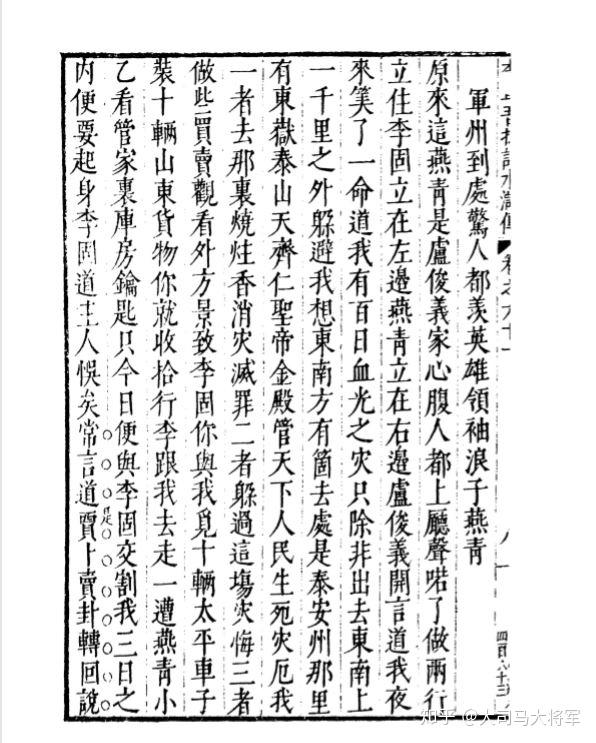 卷之六十一
軍州到處驚人都羨英雄領袖浪子燕青
原來這燕青是盧俊義家心腹人都上廳聲喏了做兩行
立住李固立在左邊燕青立在右邊盧俊義開言道我夜
來筭了一命道我有百日血光之灾只除非出去東南上
一千里之外躲避我想東南方有箇去處是泰安州那里
有東嶽泰山天齊仁聖帝金殿管天下人民生死灾厄我
一者去那裏燒炷香消灾滅罪二者躲過這塲灾悔三者
做些買賣觀看外方景致李固你與我覓十輛太平車子
裝十輛山東貨物你就收拾行李跟我去走一遭燕青小
乙看管家裏庫房鑰匙只今日便與李固交割我三日之
是
内便要起身李固道主人悞矣常言道賈卜賣卦轉回說
知乎 @大司马大将军